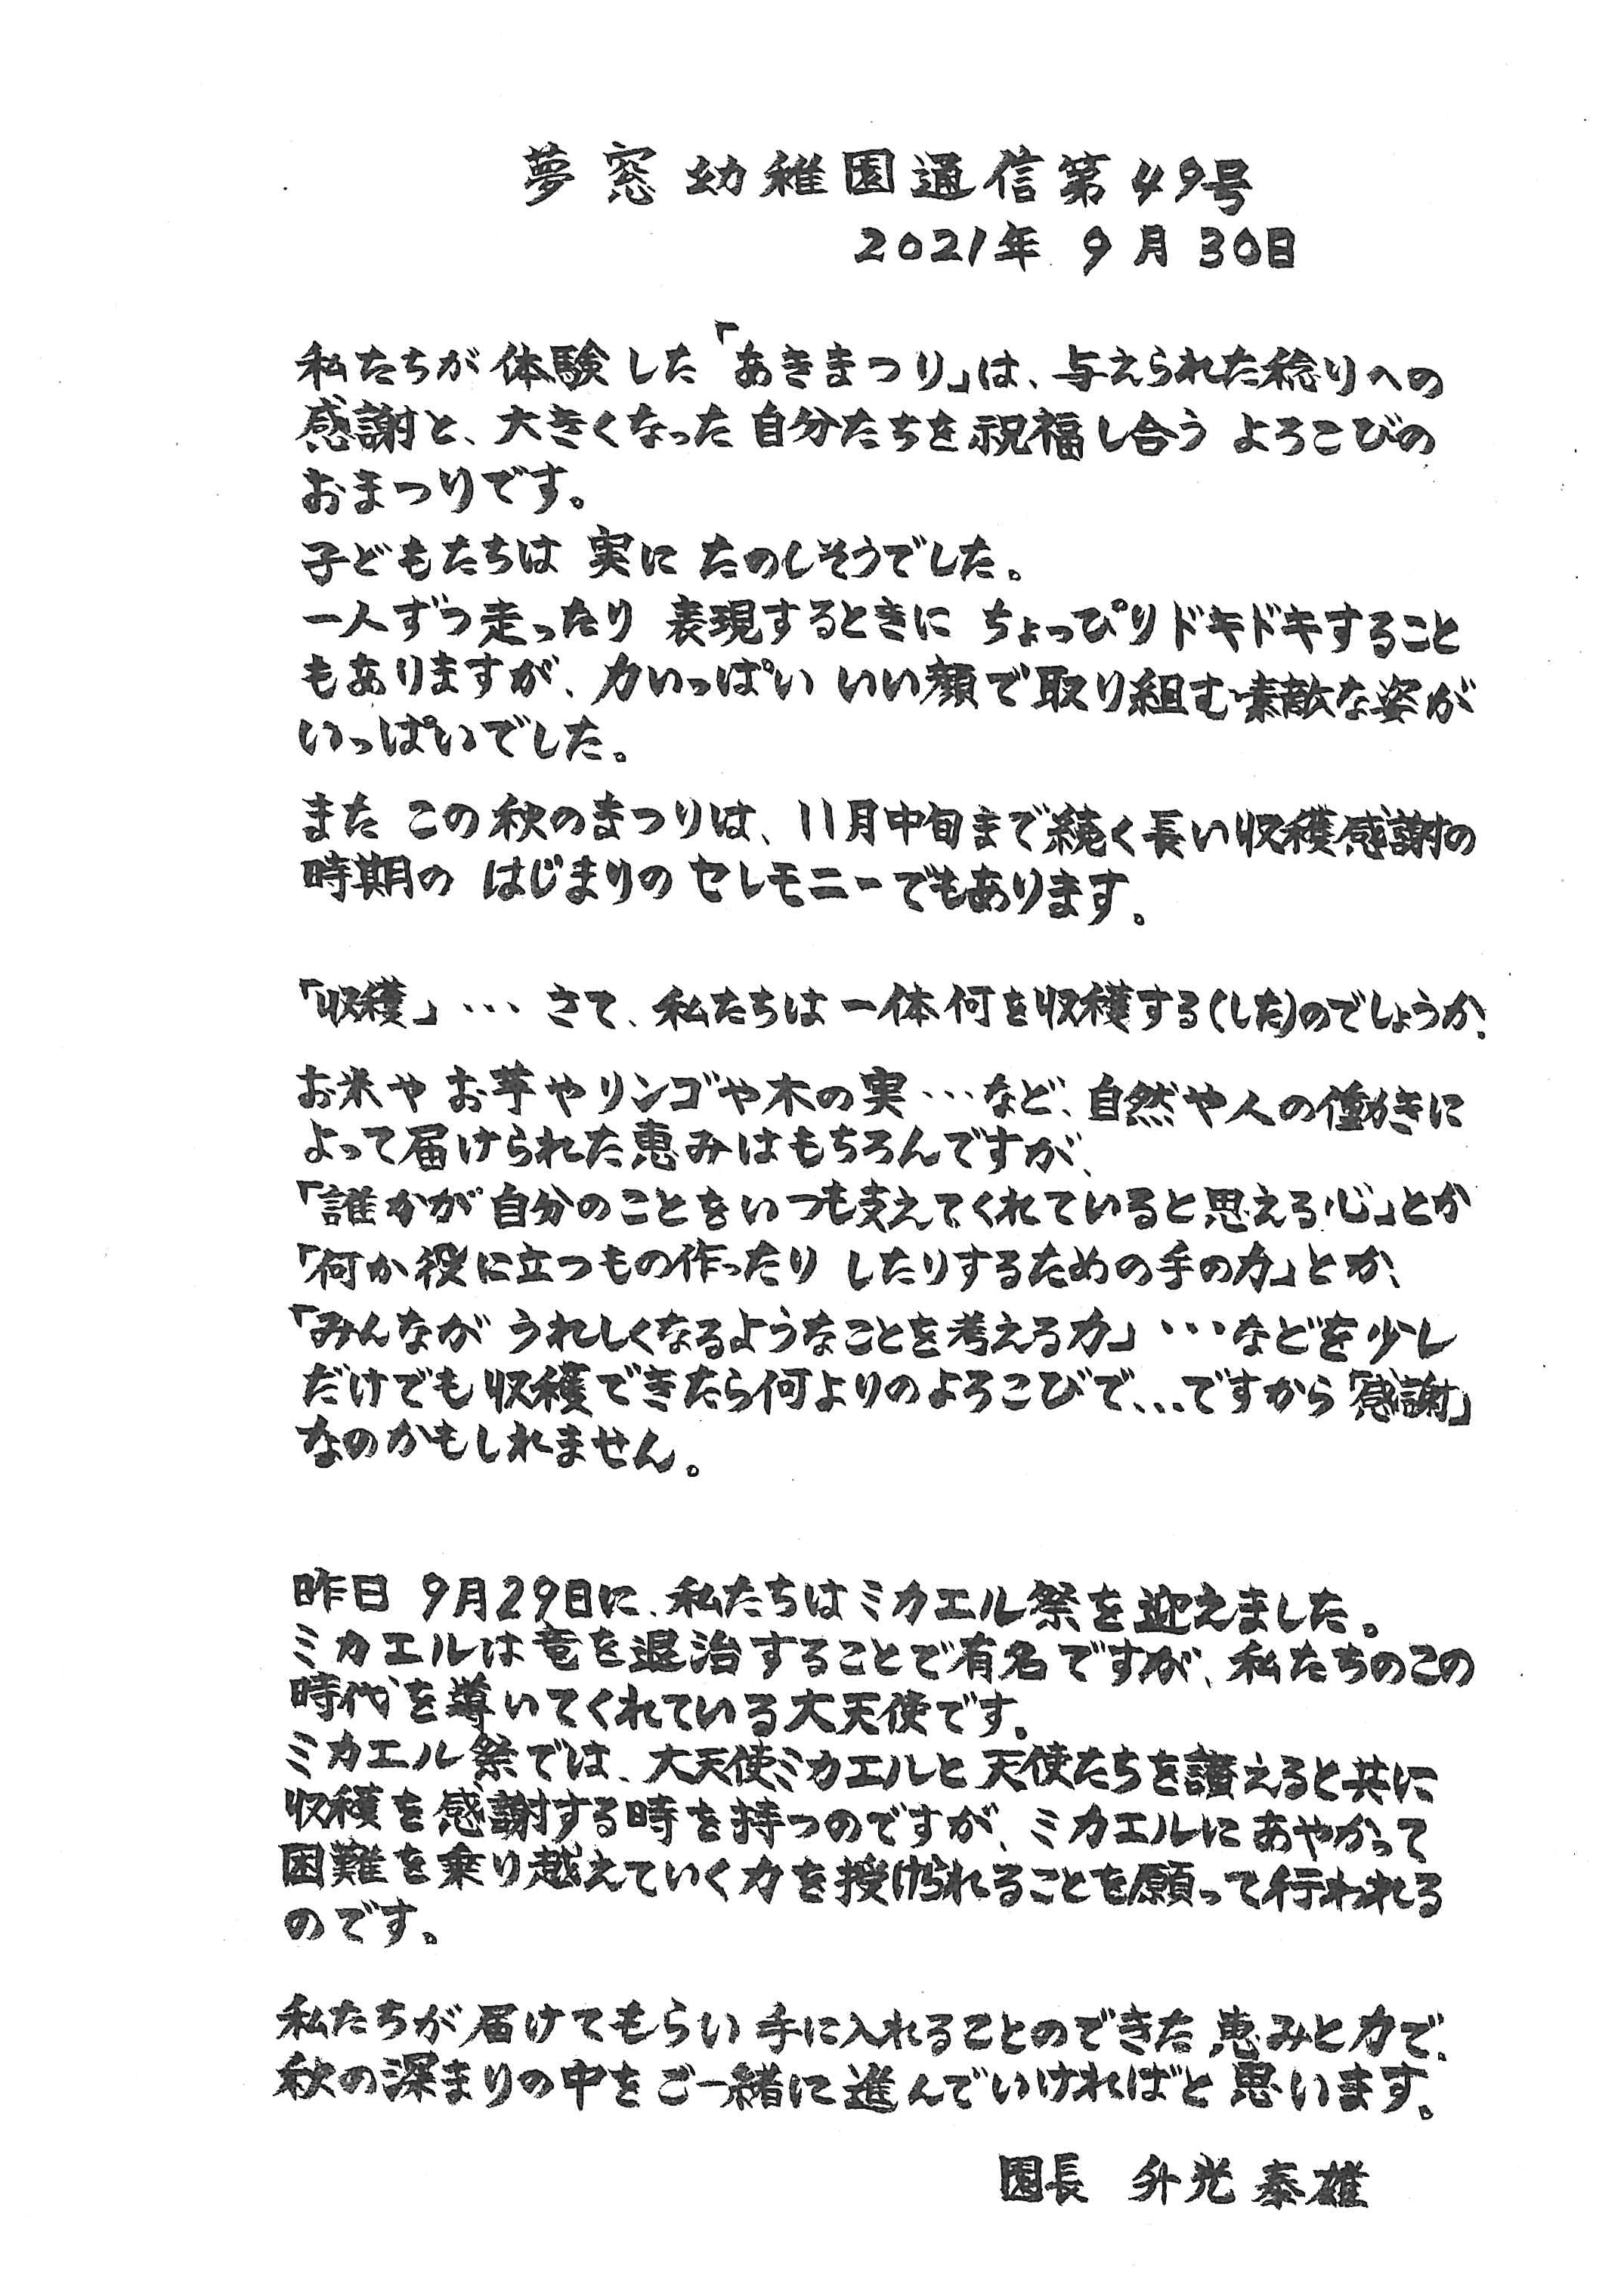 夢窓幼稚園通信第49号
2021年 9月 30日
私たちが体験した「あきまつり」は、与えられた稔りへの
感謝と、大きくなった自分たちを祝福し合う よろこびの
おまつりです。
子どもたちは 実に たのしそうでした。
一人ずつ走ったり 表現するときに ちょっぴりドキドキすること
もありますが、力いっぱい いい顔で取り組む素敵な姿が
いっぱいでした。
また この秋のまつりは、11月中旬まで続く長い収穫感謝の
時期の はじまりの セレモニーでもあります。
「収穫」・・・ さて、私たちは 一体何を収穫する(した)のでしょうか。
お米や お芋や リンゴや木の実・・・など、自然や人の働きに
よって届けられた恵みはもちろんですが、
「誰かが自分のことをいつも支えてくれていると思える心」とか
「何か役に立つもの作ったり したりするための手の力」とか、
「みんなが うれしくなるようなことを考える力」・・・などを少し
だけでも収穫できたら何よりのよろこびで、...ですから「感謝」
なのかもしれません。
昨日 9月29日に、私たちはミカエル祭を迎えました。
ミカエルは竜を退治することで有名ですが、私たちのこの
時代を導いてくれている大天使です。
ミカエル祭では、大天使ミカエルと 天使たちを讃えると共に
収穫を感謝する時を持つのですが、ミカエルに あやかって
困難を乗り越えていく力を授けられることを願って行われる
のです。
私たちが届けてもらい 手に入れることのできた 恵みと力で、
秋の深まりの中をご一緒に進んでいければと 思います。
園長 升光 泰雄